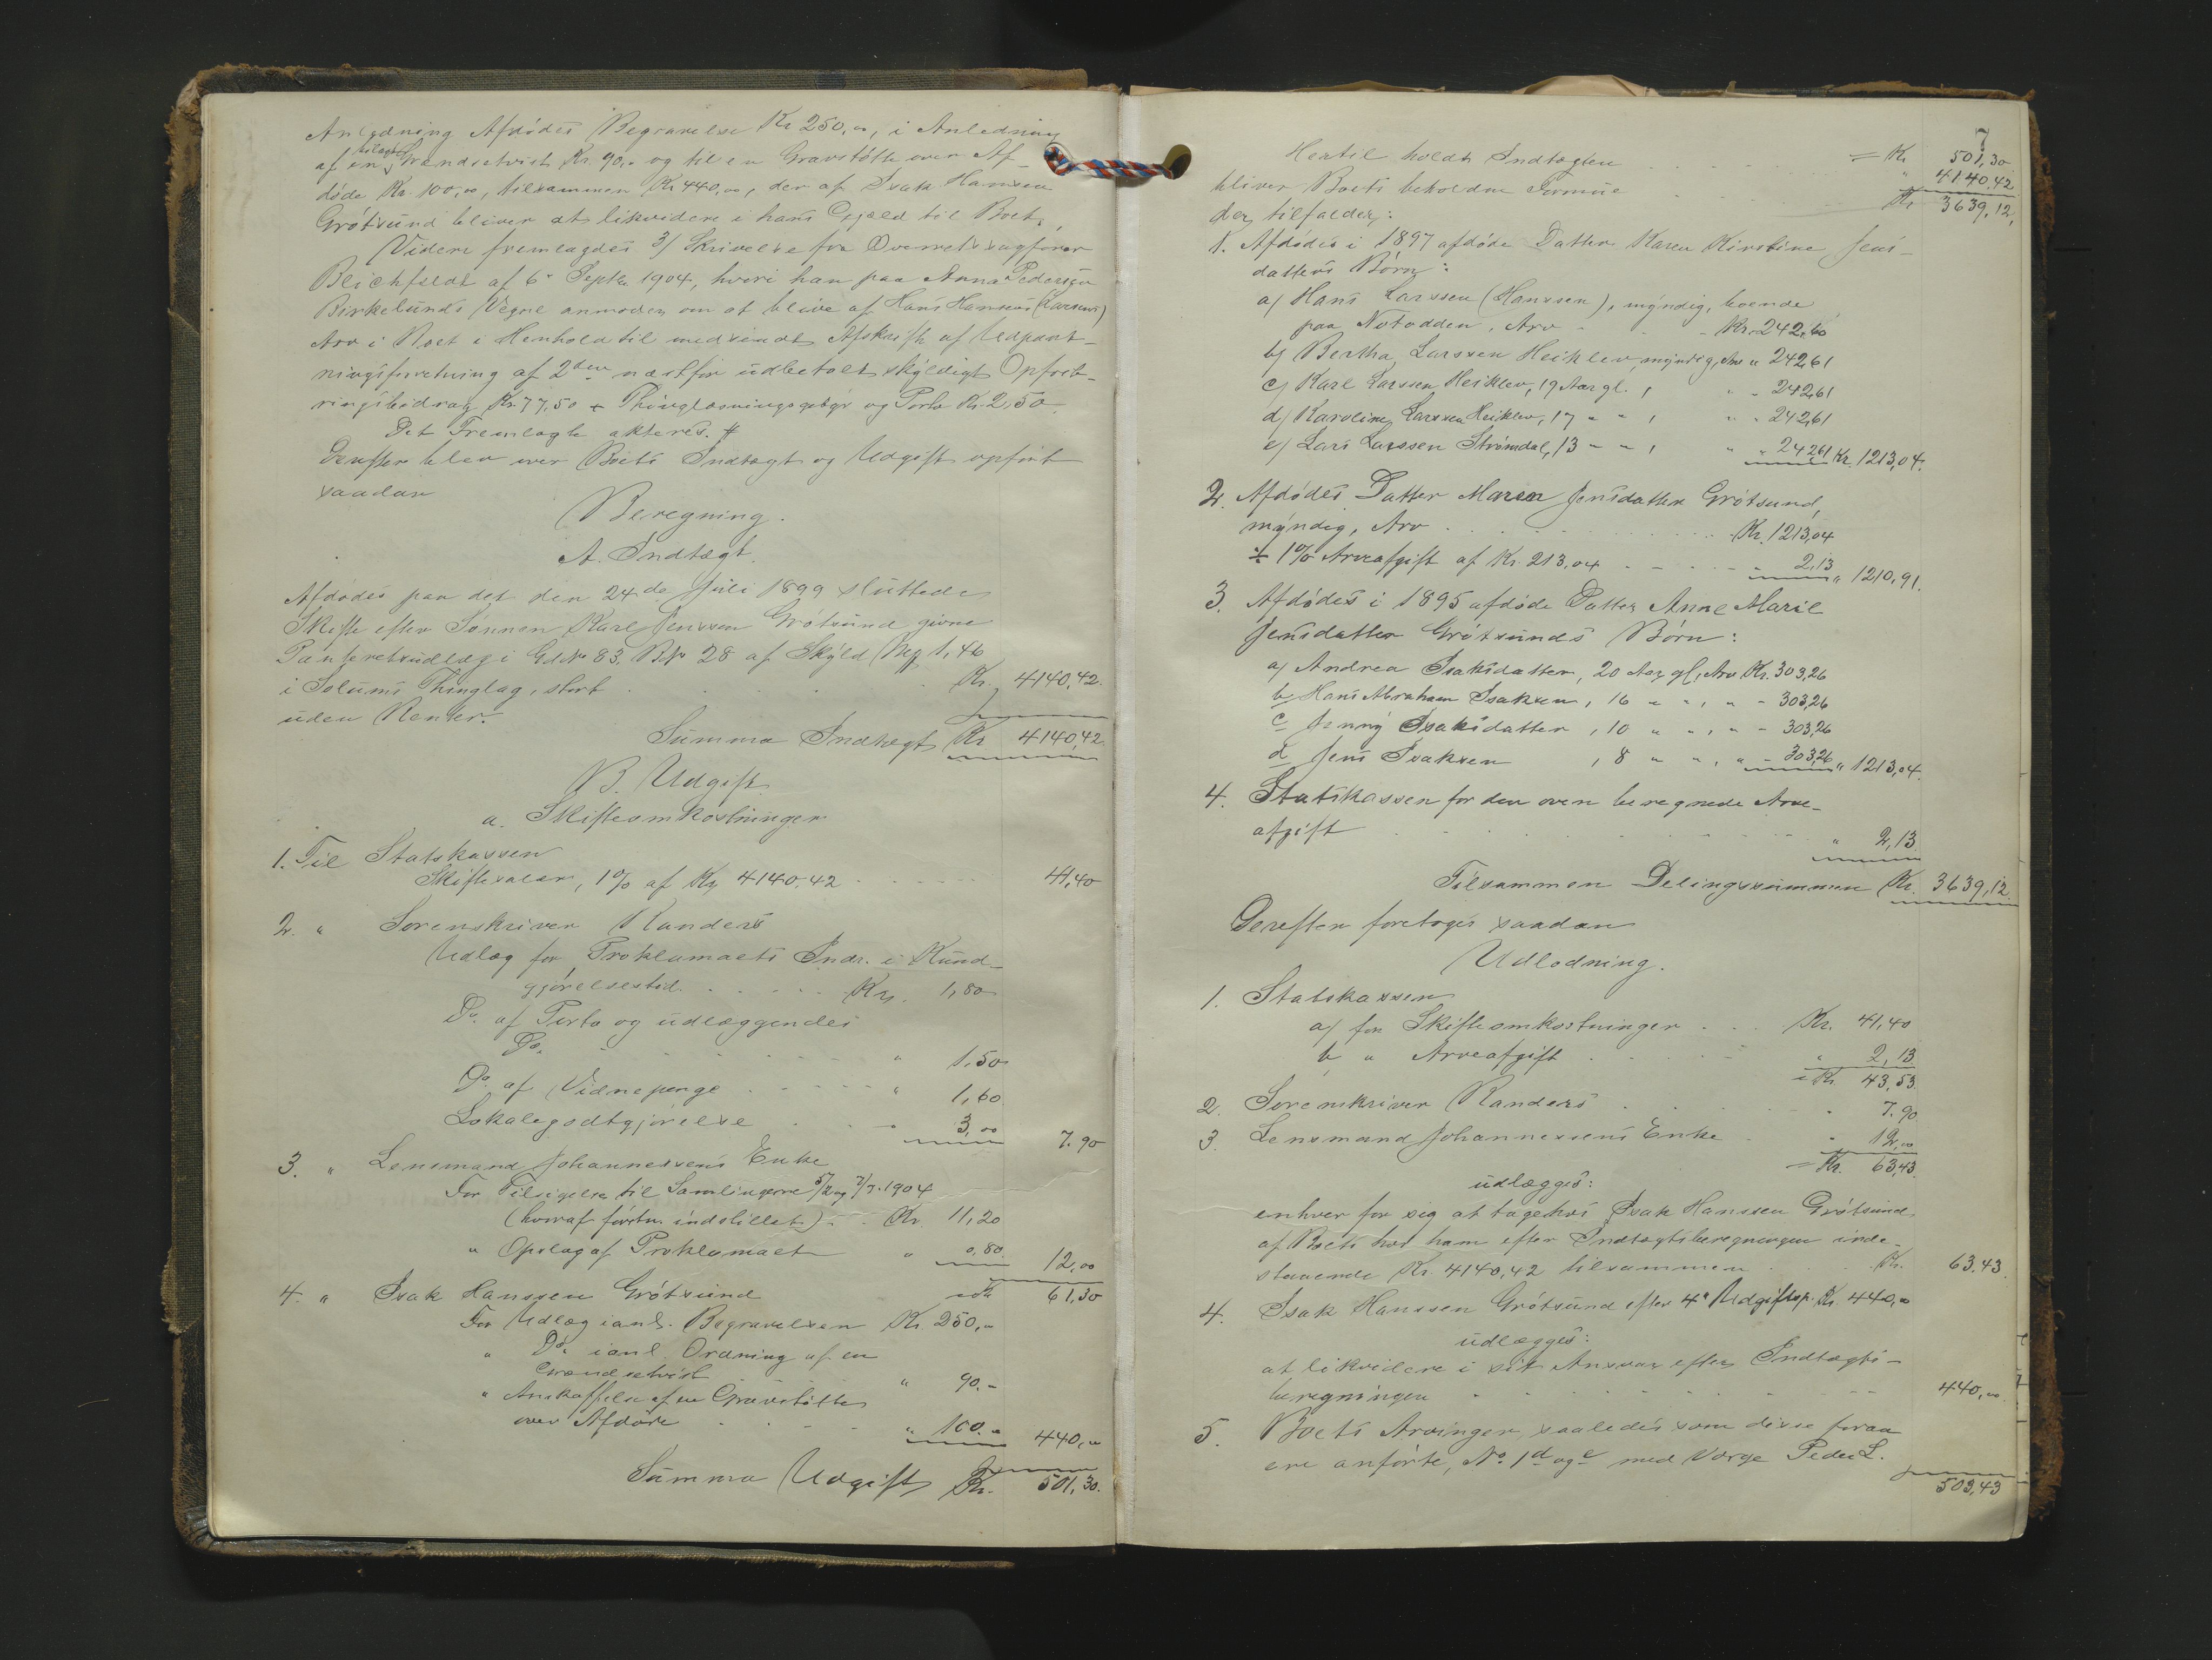 Anledning Afdødes Begravelse Kr 250,00, i Anledning
af en Grændsetvist Kr. 90,- og til en Gravstøtte over Af-
døde Kr. 100,00, tilsammen Kr 440,00, der af Isak Hansen
Grøtsund bliver at likvidere i hans Gjæld til Boet.
Videre fremlagdes 3/ Skrivelse fra Overretssagfører
Blichfeldt af 6' Septbr 1904, hvori han paa Anna Pedersen
Birkelunds Vegne anmoder om at blive af Hans Hansens (Larsens)
Arv i Boet i Henhold til medsendt Afskrift af Udpant-
ningsforretning af 2den næstfør udbetalt skyldigt Opfost-
ringsbidrag Kr. 77,50 + Thinglæsningsgebyr og Porto Kr. 2,50.
Det Fremlagte akteres. #
Derefter blev over Boets Indtægt og Udgift opført
saadan
Beregning.
A. Indtægt.
Afdødes paa det den 24de Juli 1899 sluttede
Skifte efter Sønnen Karl Jenssen Grøtsund givne
Panteretsudlæg i Gd.Nr 83, BNr 28 af Skyld Mk 1,46
i Solums Thinglag, stort . . . . Kr. 4140,42.
uden Renter.
Summa Indtægt Kr 4140,42.
B. Udgift.
a. Skifteomkostninger
1. Til Statskassen
Skiftesalær, 1% af Kr 4140,42 - - - - 41,40
2. " Sorenskriver Randers
Udlæg for Proklamaets Indr. i Kund-
gjørelsestid. . . . . . Kr. 1,80
Do. af Porto og udlæggendes
Do. - - - - - " 1,50
Do. af Vidnepenge . - - - - " 1,60
Lokalegodtgjørelse . . - " 3,00 7,90
3. " Lensmand Johannessens Enke
For Tilsigelse til Samlingerne 5/2 og 7/7. 1904
(hvoraf første indstillet) . . Kr. 11,20
" Opslag af Proklamaet " 0,80 12,00
= Kr 61,30
4. " Isak Hanssen Grøtsund
For Udlæg ianl. Begravelsen Kr 250,00
" Do. ianl. Ordning af en
Grændsetvist . . . " 90.-
" Anskaffelse af en Gravstøtte
over Afdøde . . - - " 100.- 440,00
Summa Udgift Kr. 501,30.
7
Hertil holdt Indtægten . . . . = Kr 501,30
" 4140,42
bliver Boets beholdne Formue . . . . Kr 3639,12,
der tilfalder:
1. Afdødes i 1897 afdøde Datter Karen Kirstine Jens-
datters Børn:
a/ Hans Larssen (Hanssen), myndig, boende
paa Notodden, Arv - . - Kr. 242,60
b/ Bertha Larssen Heiklev, myndig, Arv " 242,61
c/ Karl Larssen Heiklev, 19 Aar gl. , " - 242,61
d/ Karoline Larssen Heiklev, 17 - - , " - 242,61
e/ Lars Larssen Strømdal, 13 - - , " " 242,61 Kr. 1213,04.
2. Afdødes Datter Maren Jensdatter Grøtsund,
myndig, Arv . . . . . . . . Kr. 1213,04
÷ 1% Arveafgift af Kr. 213,04 - - - - 2,13 " 1210,91.
3. Afdødes i 1895 afdøde Datter Anne Marie
Jensdatter Grøtsunds Børn:
a/ Andrea Isaksdatter, 20 Aar gl., Arv Kr. 303,26
b/ Hans Abraham Isaksen, 16 " ", " - 303,26
c Jenny Isaksdatter , 10 " ", " - 303,26
d Jens Isaksen , 8 " ", " - 303,26 " 1213,04.
4. Statskassen for den oven beregnede Arve-
afgift - - - - - - - - " 2,13
Tilsammen Delingssummen Kr. 3639,12
Derefter foretoges saadan
Udlodning.
1. Statskassen
a/ for Skifteomkostninger . . . Kr. 41,40
b " Arveafgift . . . . . " 2,13
= Kr. 43,53
2. Sorenskriver Randers . . . . " 7,90
3 Lensmand Johannessens Enke . " 12,00
= Kr. 63,43
udlægges:
enhver for sig at tage hos Isak Hanssen Grøtsund
af Boets hos ham efter Indtægtsberegningen inde-
staaende Kr. 4140,42 tilsammen . . . Kr. 63,43
4. Isak Hanssen Grøtsund efter 4' Udgiftsp. Kr. 440,00
udlægges:
at likvidere i sit Ansvar efter Indtægts-
beregningen . . . . . . . 440,00
5. Boets Arvinger, saaledes som disse foran
ere anførte, No 1 d og e med Værge Peder L.
503,43